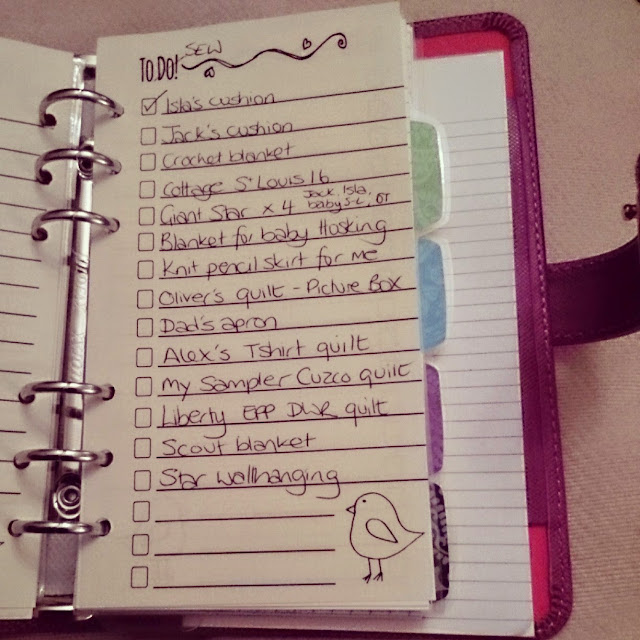 SEW
TO DO!
Isla's cushion
Jack's cushion
Crochet blanket
Cottage St Louis 16
Giant Star x 4 Jack, Isla,
baby S-L, OT
Blanket for baby Hosking
Knit pencil skirt for me
Oliver's quilt - Picture Box
Dad's apron
Alex's Tshirt quilt
My Sampler Cuzco quilt
Liberty EPP DWR quilt
Scout blanket
Star wallhanging